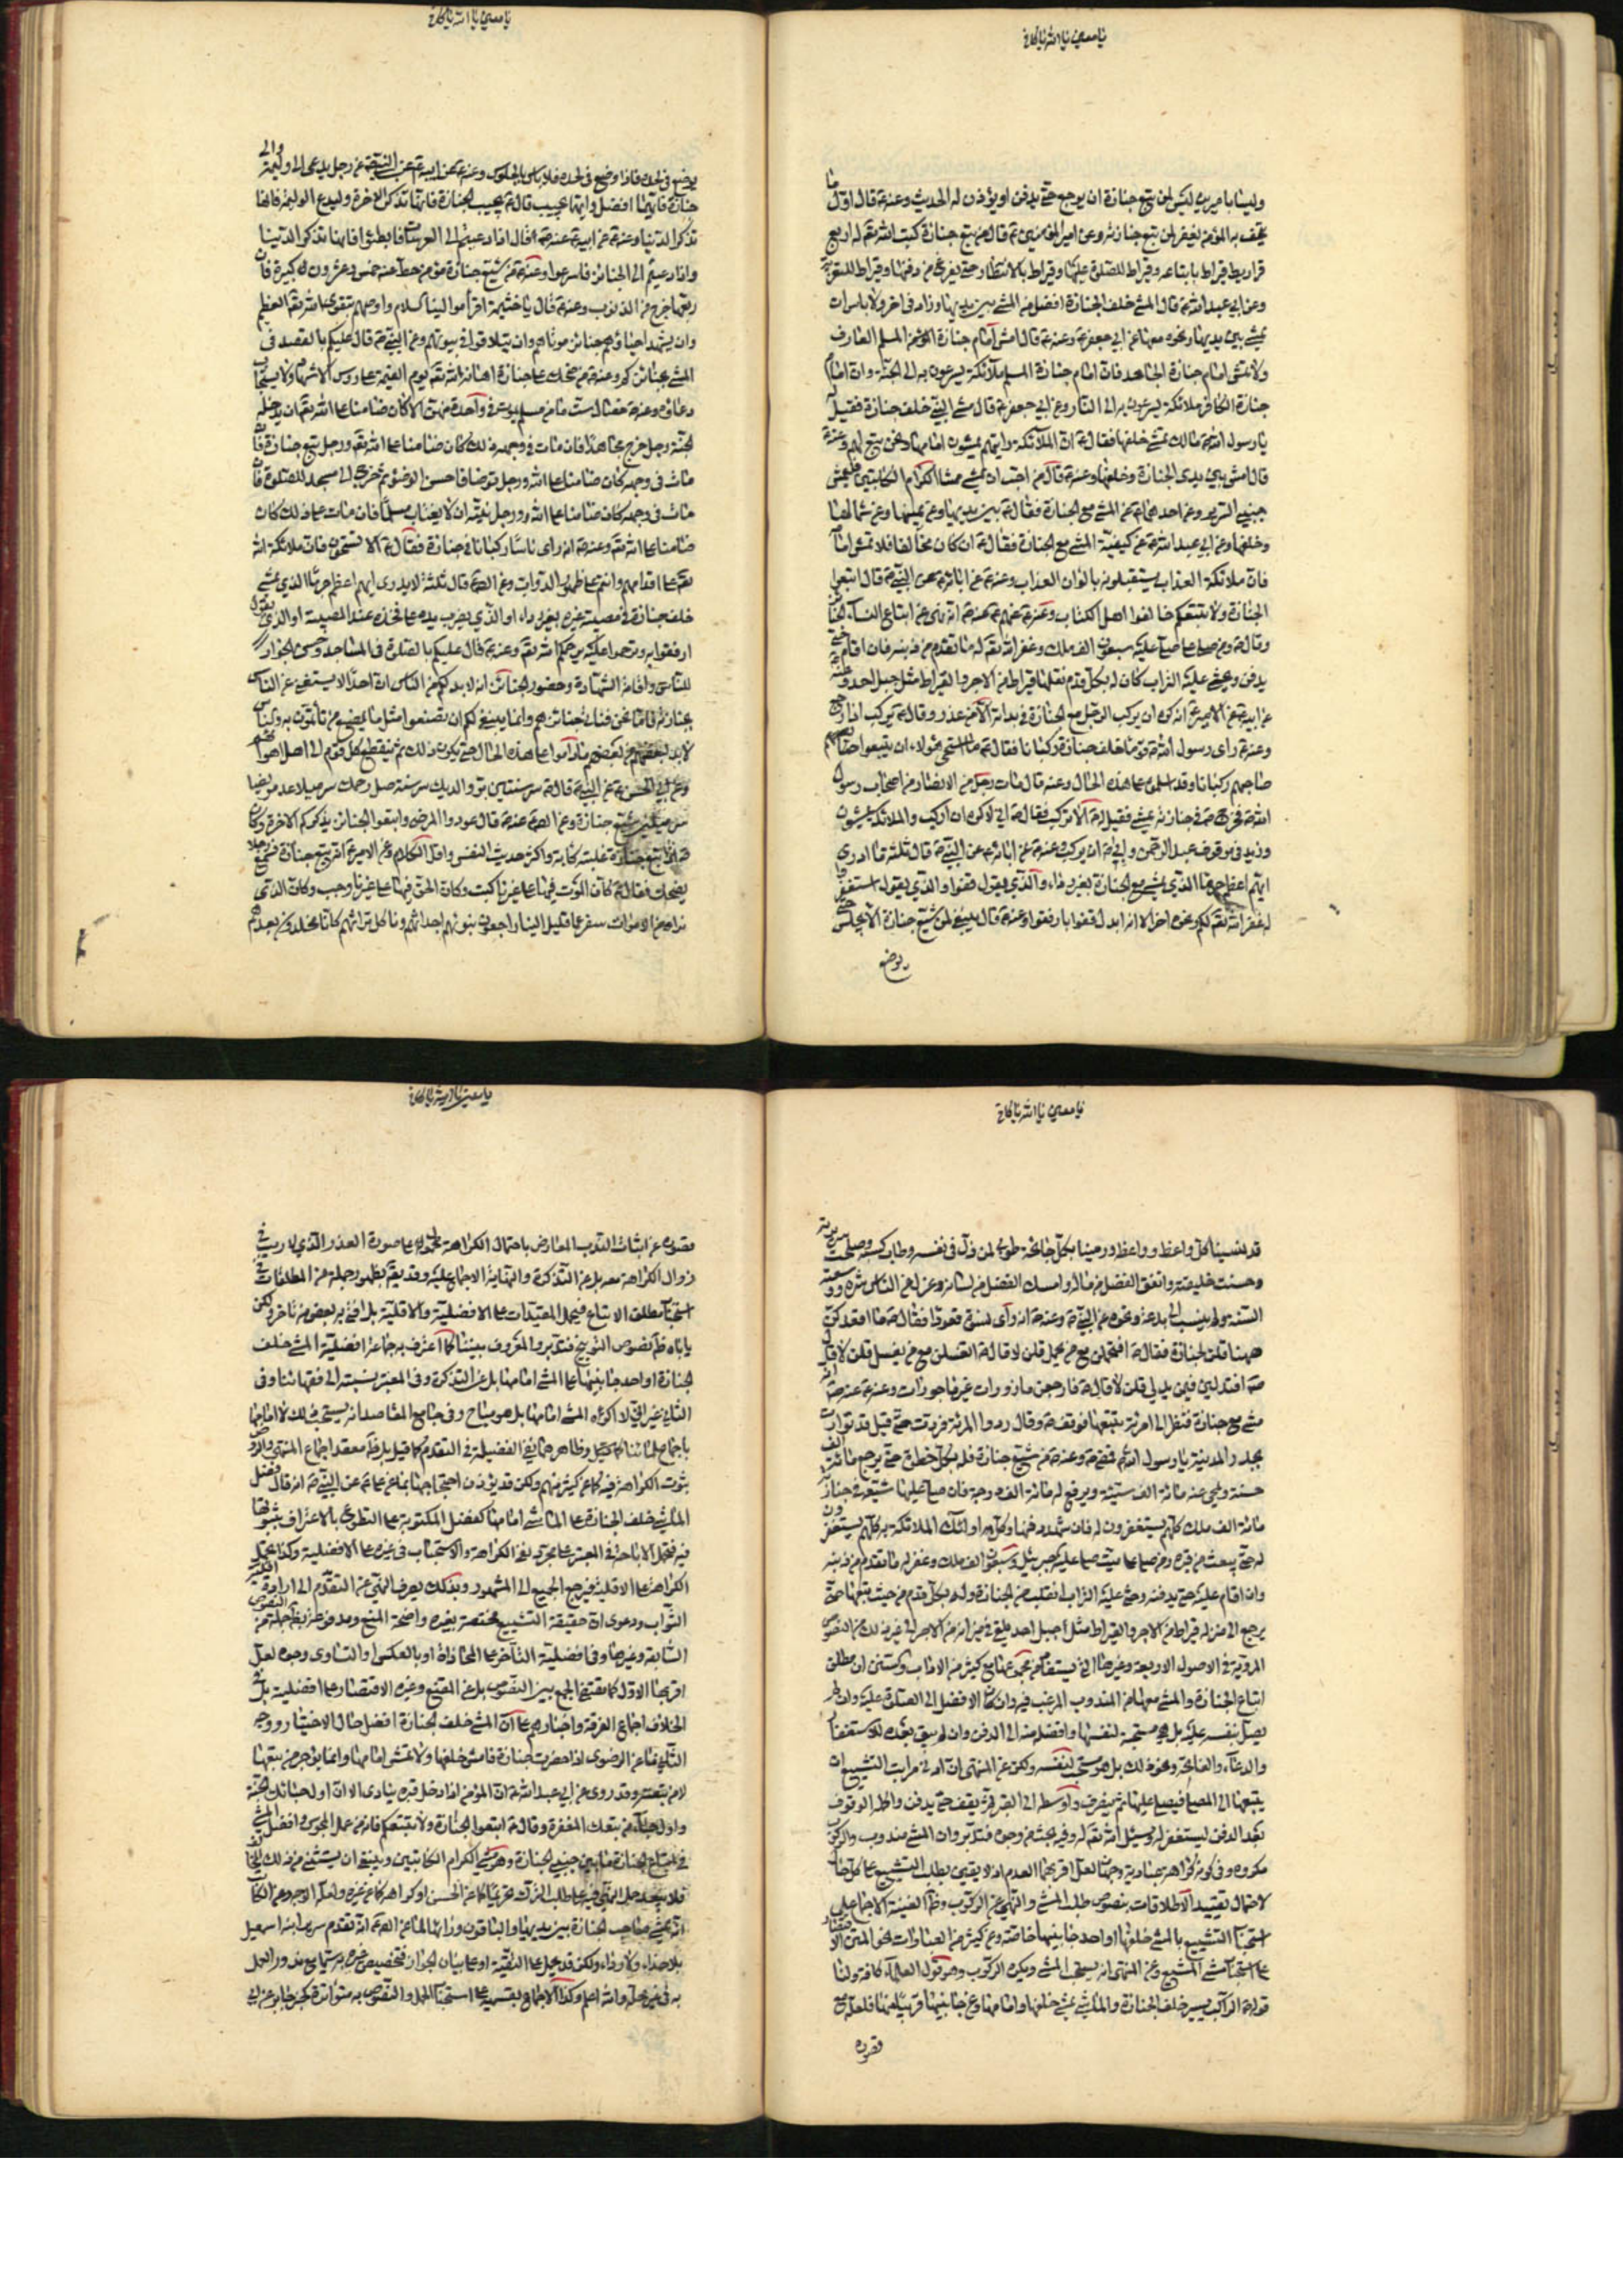 يا معين يا الله يا كافي
ولينا بامير بن ليس لمن يتبع جنازة ان يرجع حتى يدفن او يؤذن له الحديث وعنه قال اول ما
يتحف به المؤمن يغفر لمن تبع جنازته وعن امير المؤمنين ع قال من تبع جنازة كتب الله تعه له اربع
قراريط قيراط باتباعه وقيراط للصلوة عليها وقيراط بالانتظار حتى يفرغ من دفنها وقيراط للتعزية
وعن ابي عبد الله ع قال المشي خلف الجنازة افضل من المشي بين يديها وزاد في اخر ولا باس ان
يمشي بين يديها ونحوه معناه عن ابي جعفر ع وعنه ع قال امش امام جنازة المؤمن المسلم العارف
ولا تمش امام جنازة الجاحد فان امام جنازة المسلم ملائكة يسرعون به الى الجنة وان امام
جنازة الكافر ملائكة يسرعون به الى النار وعن ابي جعفر ع قال مشى النبي خلف جنازة فقيل
يا رسول الله مالك تمشي خلفها فقال ع ان الملائكة رايتهم يمشون امامها ونحن نتبع لهم وعنه ع
قال امش بين يدي الجنازة وخلفها وعنه ع قال من احب ان يمشي ممشا الكرام الكاتبين فليمش
جنبي السرير وعن احدهما ع عن المشي مع الجنازة فقال ع بين يديها وعن يمينها وعن شمالها
وخلفها وعن ابي عبد الله ع عن كيفية المشي مع الجنازة فقال ع ان كان مخالفا فلا تمش امامه
فان ملائكة العذاب يستقبلونه بالوان العذاب وعنه ع عن ابائه ع عن النبي ص قال اتبعوا
الجنازة ولا تتبعكم خالفوا اهل الكتاب
وقال ع من صلى على ميت صلى عليه سبعون الف ملك وغفر الله تعه له ما تقدم من ذنبه فان اقام حتى
يدفن ويحثى عليه التراب كان له بكل قدم نقلها قيراط من الاجر والقيراط مثل جبل احد وعنه
عن ابيه ع عن الامير ع انه كره ان يركب الرجل مع الجنازة في بدائه الا من عذر وقال ع يركب اذا رجع
وعنه ع راى رسول الله ص قوما خلف جنازة ركبانا فقال ع ما استحى هؤلاء ان يتبعوا
صاحبهم ركبانا وقد اسلموه على هذه الحال وعنه قال مات رجل من الانصار من اصحاب رسول
الله ص فخرج ص في جنازته يمشي فقيل له الا تركب فقال ص اني لاكره ان اركب والملائكة يمشون
قال ثلثة ما ادري
ايهم اعظم جرما الذي يمشي مع الجنازة بغير رداء والذي يقول قفوا والذي يقول استغفروا
له غفر الله تعه لكم ونحوه اخر الا انه ابدل قفوا بارفقوا وعنه ع قال ينبغي لمن شيع جنازة الا يجلس حتى
يوضع
يا معين يا الله يا كافي
يوضع في لحده فاذا وضع في لحده فلا باس بالجلوس وعنه ع عن ابيه ع عن النبي ص عن رجل يدعى الى وليمة والى
جنازة فايهما افضل وايهما يجيب قال ع يجيب الجنازة فانها تذكر الاخرة وليدع الوليمة فانها
تذكر الدنيا وعنه ع عن ابيه ع عنه ص قال اذا دعيتم الى العرسات فابطئوا فانها تذكر الدنيا
واذا دعيتم الى الجنائز فاسرعوا وعنه ع من شيع جنازة مؤمن حط عنه خمس وعشرون كبيرة فان
ربعها خرج من الذنوب وعنه ع قال يا خثيمة اقرا موالينا السلام واوصهم بتقوى الله تعه العظيم
وان يشهد احياؤهم جنائز موتاهم وان يتلاقوا في بيوتهم وعن النبي ص قال عليكم بالقصد في
المشي بجنائزكم وعنه ع من ضحك على جنازة اهانه الله تعه يوم القيمة على رؤس الاشهاد ولا يستجاب
دعاؤه وعنه ع خصال ست ما من مسلم يموت في واحدة منهن الا كان ضامنا على الله تعه ان يدخله
الجنة رجل خرج مجاهدا فان مات في وجهه ذلك كان ضامنا على الله تعه ورجل تبع جنازة فان
مات في وجهه كان ضامنا على الله ورجل توضا فاحسن الوضوء ثم خرج الى مسجد للصلوة فان
مات في وجهه كان ضامنا على الله ورجل نيته ان لا يغتاب مسلما فان مات على ذلك كان
ضامنا على الله تعه وعنه ص انه راى ناسا ركبانا في جنازة فقال ع الا تستحيون فان ملائكة الله
تعه على اقدامهم وانتم على ظهور الدواب وعن الص ع قال ثلثة لا يدرى ايهم اعظم جرما الذي يمشي
خلف جنازة في مصيبة غيره بغير رداء او الذي يضرب يده على فخذه عند المصيبة او الذي يقول
ارفقوا به وترحموا عليه يرحمكم الله تعه وعنه ع قال عليكم بالصلوة في المساجد وحسن الجوار
للناس واقامة الشهادة وحضور الجنائز انه لا بد لكم من الناس ان احدا لا يستغني عن الناس
لا بد لبعضهم من بعض
وعن ابي الحسن ع عن النبي ص قال ع سر سنتين بر والديك سر سنة صل رحمك سر ميلا عد مريضا
سر ميلين شيع جنازة وعن الص ع عنه ص قال عودوا المرضى واتبعوا الجنائز يذكركم الاخرة وكان
ص اذا تبع جنازة غلبته كابة واكثر حديث النفس واقل الكلام وعن الامير ع انه تبع جنازة فسمع رجلا
يضحك فقال ع كان الموت فيها على غيرنا كتب وكان الحق فيها على غيرنا وجب وكان الذي
نراه من الاموات سفر عما قليل الينا راجعون نبوئهم اجداثهم وناكل تراثهم كانا مخلدون بعدهم
يا معين يا الله يا كافي
قد نسينا كل واعظ وواعظة ورمينا بكل جائحة طوبى لمن ذل في نفسه وطاب كسبه وصلحت سريرته
وحسنت خليقته وانفق الفضل من ماله وامسك الفضل من لسانه وعزل عن الناس شره ووسعته
السنة ولم ينسب الى بدعة ونحوه عن النبي ص وعنه ص انه راى نسوة قعودا فقال ص ما اقعدكن
ههنا قلن لجنازة فقال ص افتحملن مع من يحمل قلن لا قال ص اتغسلن مع من يغسل قلن لا قال
ص افتدلين فيمن يدلي قلن لا قال ص فارجعن مازورات غير ماجورات وعنه ع عنه ص انه
مشى مع جنازة فنظر الى امرئة تتبعها فوقف ص وقال ردوا المرئة فردت حتى قيل قد توارت
بجدر المدينة يا رسول الله فمضى ص وعنه ص من شيع جنازة فله بكل خطوة حتى يرجع مائة الف
حسنة ويمحى عنه مائة الف سيئة ويرفع له مائة الف درجة فان صلى عليها شيعه في جنازته
مائة الف ملك كلهم يستغفرون له فان شهد دفنها وكل الله اولئك الملائكة به كلهم يستغفرون
له حتى يبعث من قبره ومن صلى على ميت صلى عليه جبرئيل وسبعون الف ملك وغفر له ما تقدم من ذنبه
وان اقام عليه حتى يدفنه وحثى عليه التراب انقلب من الجنازة وله بكل قدم من حيث تبعها حتى
يرجع الى منزله قيراط من الاجر والقيراط مثل جبل احد يلقى في ميزانه من الاجر الى غير ذلك من النصوص
المروية في الاصول الاربعة وغيرها التي يستفاد من مجموعها مع كثير من الاداب والسنن ان مطلق
اتباع الجنازة والمشي معها من المندوب المرغب فيه وان كان الافضل الى الصلوة عليه وان لم
والدعاء والفاتحة ونحو ذلك بل هو مستحب لنفسه ولكن عن المنتهى ان ادنى مراتب التشييع ان
يتبعها الى المصلى فيصلي عليها ثم ينصرف واوسطه الى القبر ثم يقف حتى يدفن واكمله الوقوف
بعد الدفن ليستغفر له ويسئل الله تعه له وفيه بحث من وجوه فتدبر وان المشي مندوب والركوب
مكروه وفي كونه كراهة عبادية وجهان لعل اقربهما العدم اذ لا يقين بطلب التشييع على كل حال
لاحتمال تقييد الاطلاقات بنصوص طلب المشي والنهي عن الركوب وظ الغنية الاجماع على
استحباب التشييع بالمشي خلفها او احد جانبيها خاصة وعن كثير من العبارات نحو المتن الاقتصار
على استحباب مشي المشيع وعن المنتهى انه يستحب المشي ويكره الركوب وهو قول العلماء كافة ولنا
قوله ص الراكب يسير خلف الجنازة والماشي يمشي خلفها وامامها وعن جانبيها قريبا منها فلعله مع
قصوره
يا معين يا الله يا كافي
قصوره عن اثبات الندب المعارض باحتمال الكراهة محمول على صورة العذر الذي لا ريب في
زوال الكراهة معه بل عن التذكرة والنهاية الاجماع عليه وقد يقه بظهور جملة من المطلقات في
استحباب مطلق الاتباع فيحمل المقيدات على الافضلية والاقلية بل افتى به بعض من تاخر ولكن
ياباه ظ نصوص التوبيخ فتدبر والمعروف بيننا كما اعترف به جماعة افضلية المشي خلف
الجنازة او احد جانبيها على المشي امامها بل عن التذكرة وفي المعتبر نسبته الى فقهائنا وفي
الثاني غير اني لا اكره المشي امامها بل هو مباح وفي جامع المقاصد انه يستحب ذلك لا امامها
باجماع علمائنا
بثبوت الكراهة فيه كما عن كثير منهم ولكن قد يؤذن احتجاجهما بما عن علي ع عن النبي ص انه قال فضل
الماشي خلف الجنازة على الماشي امامها كفضل المكتوبة على التطوع بالاعتراف بثبوتها
فيه فتحمل الاباحة في المعتبر على مجرد نفي الكراهة والاستحباب في غيره على الافضلية وكذا يحمل
الكراهة على الاقلية فيرجع الجميع الى المشهور وبذلك يصرف النهي عن التقدم الى ارادة اقلية
الثواب ودعوى ان حقيقة التشييع مختصة بغيره واضحة المنع ومدفوعة بظ جملة من النصوص
السابقة وغيرها وفي افضلية التاخر على المحاذاة او بالعكس او التساوي وجوه لعل
اقربها الاول كما يقتضي الجمع بين النصوص بل عن المقنع وغيره الاقتصار على افضليته بل عن
الخلاف اجماع الفرقة واخبارهم على ان المشي خلف الجنازة افضل حال الاختيار ووجه
الثاني ما عن الرضوي اذا حضرت جنازة فامش خلفها ولا تمش امامها وانما يؤجر من تبعها
لا من تبعته وقد روي عن ابي عبد الله ع ان المؤمن اذا دخل قبره ينادى الا ان اول حبائك الجنة
واول حباء من تبعك المغفرة وقال ع اتبعوا الجنازة ولا تتبعكم فانه من عمل المجوس وافضل المشي
في اتباع الجنازة ما بين جنبي الجنازة وهو مشي الكرام الكاتبين وينبغي ان يستثنى من ذلك
انه يمشي صاحب الجنازة بين يديها والباقون وراءها لما عن الص ع انه تقدم سرير ابنه اسمعيل
بلا حذاء ولا رداء ولكن قد يحمل على التقية او على بيان الجواز
به في غير محله والله اعلم وكذا الاجماع بقسميه على استحباب الحمل والنصوص به متواترة كخبر جابر عن ابي